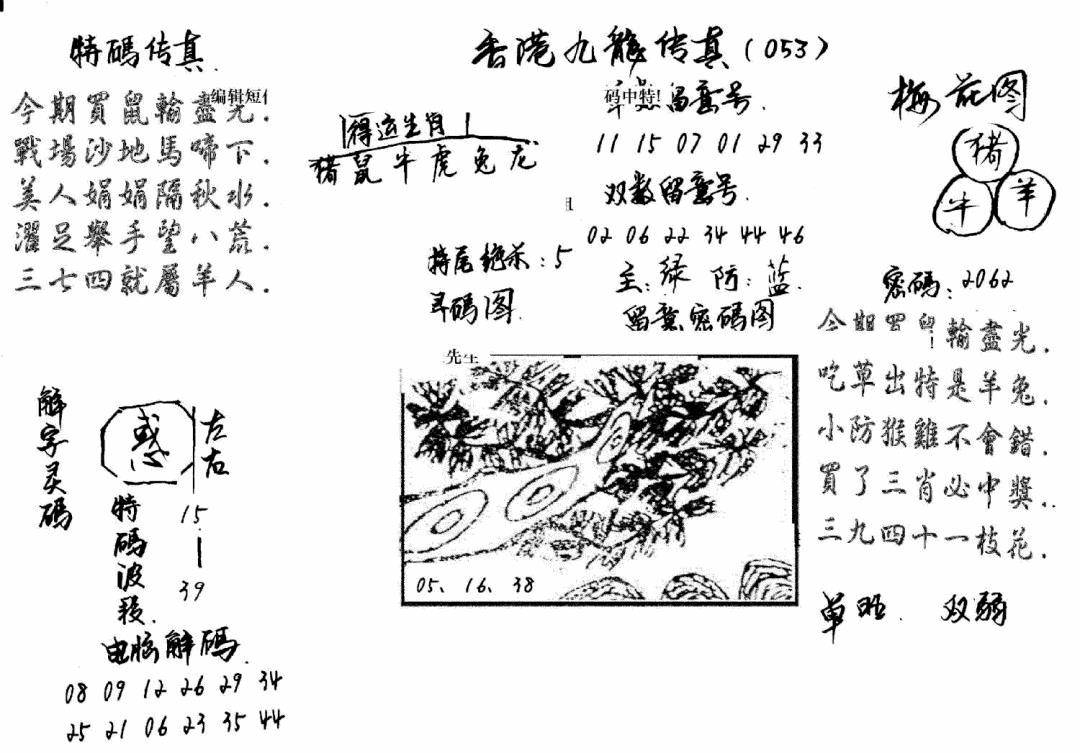 特碼传真
今期買鼠輸盡光.
编辑短
戰場沙地馬啼下.
美人娟娟隔秋水.
濯足舉手望八荒.
三七四就屬羊人.
香港九龍传真(053)
得运生肖
猪鼠牛虎兔龙
码中特!留意号.
11 15 07 01 29 33
双数留意号.
02 06 22 34 44 46
特尾绝杀:5
主:绿 防:蓝.
寻码图.
留意密码图
先生
05. 16. 38
梅花图
猪
牛 羊
密码:2062
今期買鼠輸盡光.
吃草出特是羊兔.
小防猴雞不會錯.
買了三肖必中獎..
三九四十一枝花.
单旺. 双弱
解字灵码
惑
左右
特碼波段.
15
39
电脑解码.
08 09 12 26 29 34
25 21 06 23 35 44